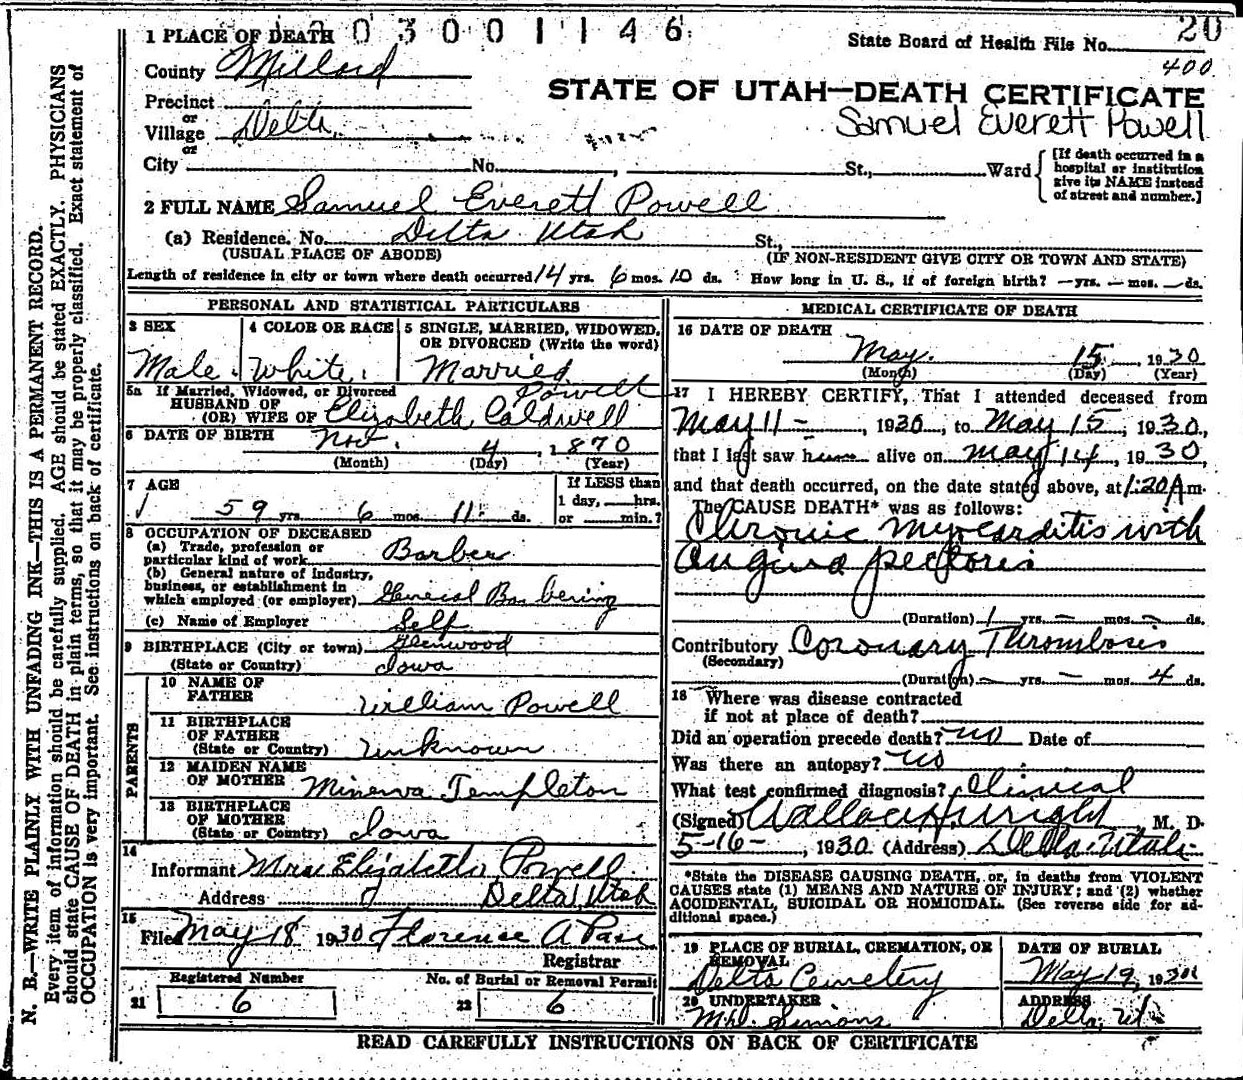 N. B.—WRITE PLAINLY WITH UNFADING INK—THIS IS A PERMANENT RECORD.
Every item of information should be carefully supplied. AGE should be stated EXACTLY. PHYSICIANS
should state CAUSE OF DEATH in plain terms, so that it may be properly classified. Exact statement of
OCCUPATION is very important. See instructions on back of certificate.
1 PLACE OF DEATH
0 3 0 0 1 1 4 6
State Board of Health File No. 20
400
County Millard
STATE OF UTAH—DEATH CERTIFICATE
Samuel Everett Powell
Precinct
or
Village Delta
or
City No. , St., Ward
[If death occurred in a
hospital or institution
give its NAME instead
of street and number.]
2 FULL NAME Samuel Everett Powell
(a) Residence. No. Delta Utah St.,
(USUAL PLACE OF ABODE) (IF NON-RESIDENT GIVE CITY OR TOWN AND STATE)
Length of residence in city or town where death occurred 14 yrs. 6 mos. 10 ds. How long in U. S., if of foreign birth? — yrs. — mos. — ds.
PERSONAL AND STATISTICAL PARTICULARS
3 SEX
Male
4 COLOR OR RACE
White
5 SINGLE, MARRIED, WIDOWED,
OR DIVORCED (Write the word)
Married
5a If Married, Widowed, or Divorced
HUSBAND OF
(OR) WIFE OF Elizabeth Caldwell Powell
6 DATE OF BIRTH Nov. 4, 1870
(Month) (Day) (Year)
7 AGE
59 yrs. 6 mos. 11 ds.
If LESS than
1 day, hrs.
or min.?
8 OCCUPATION OF DECEASED
(a) Trade, profession or
particular kind of work Barber
(b) General nature of Industry,
business, or establishment in
which employed (or employer) General Barbering
(c) Name of Employer Self
9 BIRTHPLACE (City or town) Glenwood
(State or Country) Iowa
PARENTS
10 NAME OF
FATHER William Powell
11 BIRTHPLACE
OF FATHER
(State or Country) Unknown
12 MAIDEN NAME
OF MOTHER Minerva Templeton
13 BIRTHPLACE
OF MOTHER
(State or Country) Iowa
14
Informant Mrs Elizabeth Powell
Address Delta Utah
15
Filed May 18 1930 Florence A Pace
Registrar
Registered Number
21 6
No. of Burial or Removal Permit
22 6
MEDICAL CERTIFICATE OF DEATH
16 DATE OF DEATH
May. 15, 1930
(Month) (Day) (Year)
17 I HEREBY CERTIFY, That I attended deceased from
May 11 -, 1930, to May 15, 1930,
that I last saw him alive on May 14, 1930,
and that death occurred, on the date stated above, at 1:20 A m.
The CAUSE DEATH* was as follows:
Chronic Myocarditis with
angina pectoris
(Duration) 1 yrs. — mos. — ds.
Contributory Coronary Thrombosis
(Secondary)
(Duration) — yrs. — mos. 4 ds.
18 Where was disease contracted
if not at place of death?
Did an operation precede death? no Date of
Was there an autopsy? no
What test confirmed diagnosis? Clinical
(Signed) Wallace H. Wright, M. D.
5-16-, 1930 (Address) Delta Utah
*State the DISEASE CAUSING DEATH, or, in deaths from VIOLENT
CAUSES state (1) MEANS AND NATURE OF INJURY; and (2) whether
ACCIDENTAL, SUICIDAL OR HOMICIDAL. (See reverse side for ad-
ditional space.)
19 PLACE OF BURIAL, CREMATION, OR
REMOVAL
Delta Cemetery
DATE OF BURIAL
May 19, 1930
20 UNDERTAKER
Simons
ADDRESS
Delta, Ut.
READ CAREFULLY INSTRUCTIONS ON BACK OF CERTIFICATE